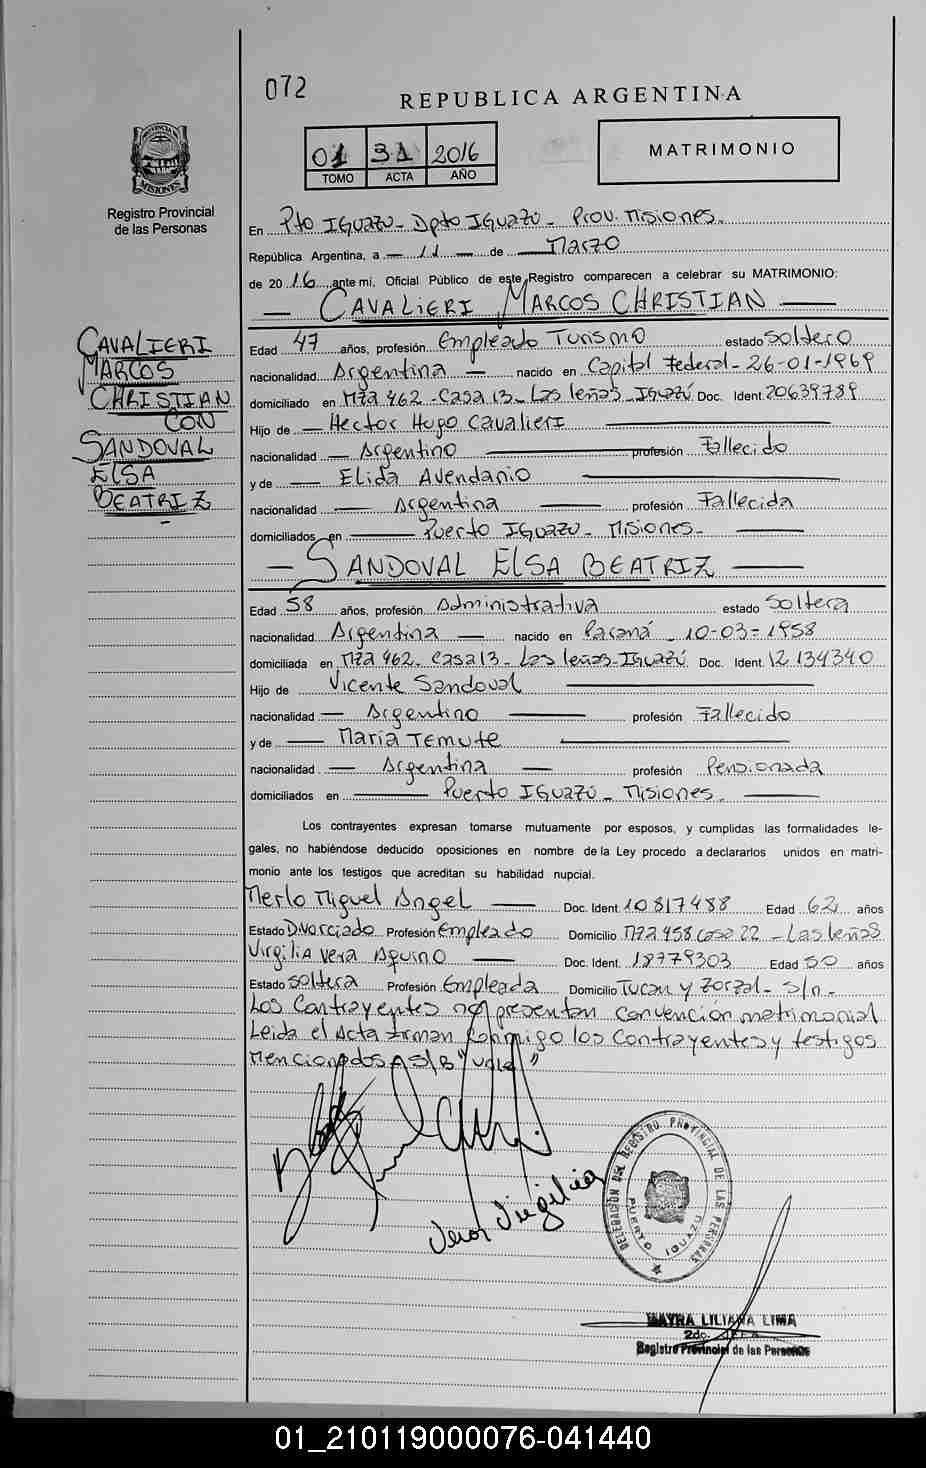 072
REPUBLICA ARGENTINA
01 31 2016
TOMO ACTA AÑO
MATRIMONIO
PROVINCIA DE
MISIONES
Registro Provincial
de las Personas
En Pto IGUAZU - Dpto IGUAZU - Prov. Misiones.
República Argentina, a — 11 — de — Marzo
de 20 16 ante mi, Oficial Público de este Registro comparecen a celebrar su MATRIMONIO:
— CAVALIERI MARCOS CHRISTIAN —
CAVALIERI
MARCOS
CHRISTIAN
CON
SANDOVAL
ELSA
BEATRIZ
Edad 47 años, profesión Empleado Turismo estado Soltero
nacionalidad Argentina — nacido en Capital Federal - 26-01-1969
domiciliado en Mza 462 - Casa 13 - Las leñas - Iguazú Doc. Ident. 20639789
Hijo de — Hector Hugo Cavalieri
nacionalidad — Argentino — profesión Fallecido
y de — Elida Avendanio —
nacionalidad — Argentina profesión Fallecida
domiciliados en — Puerto IGUAZU - Misiones - —
— SANDOVAL ELSA BEATRIZ —
Edad 58 años, profesión Administrativa estado Soltera
nacionalidad Argentina — nacido en Paraná - 10-03-1958
domiciliada en Mza 462 - Casa 13 - Las leñas - Iguazú Doc. Ident. 12 134340
Hijo de Vicente Sandoval —
nacionalidad — Argentino — profesión Fallecido
y de — Maria Temute —
nacionalidad — Argentina — profesión Pensionada
domiciliados en — Puerto IGUAZÚ - Misiones. —
Los contrayentes expresan tomarse mutuamente por esposos, y cumplidas las formalidades le-
gales, no habiéndose deducido oposiciones en nombre de la Ley procedo a declararlos unidos en matri-
monio ante los testigos que acreditan su habilidad nupcial.
Merlo Miguel Angel — Doc. Ident. 10817488 Edad 62 años
Estado Divorciado Profesión Empleado Domicilio Mza 458 casa 22 - Las leñas
Virgilia Vera Aquino — Doc. Ident. 18779303 Edad 50 años
Estado soltera Profesión Empleada Domicilio Tucan y Zorzal - s/n -
Los Contrayentes no presentan convención matrimonial
Leida el Acta firman conmigo los contrayentes y testigos
Mencionados A S/B "Vale"
Vera Virgilia
DELEGACIÓN DEL REGISTRO PROVINCIAL DE LAS PERSONAS
PUERTO IGUAZU
MAYRA LILIANA LIMA
2do. JEFA
Registro Provincial de las Personas
01_210119000076-041440